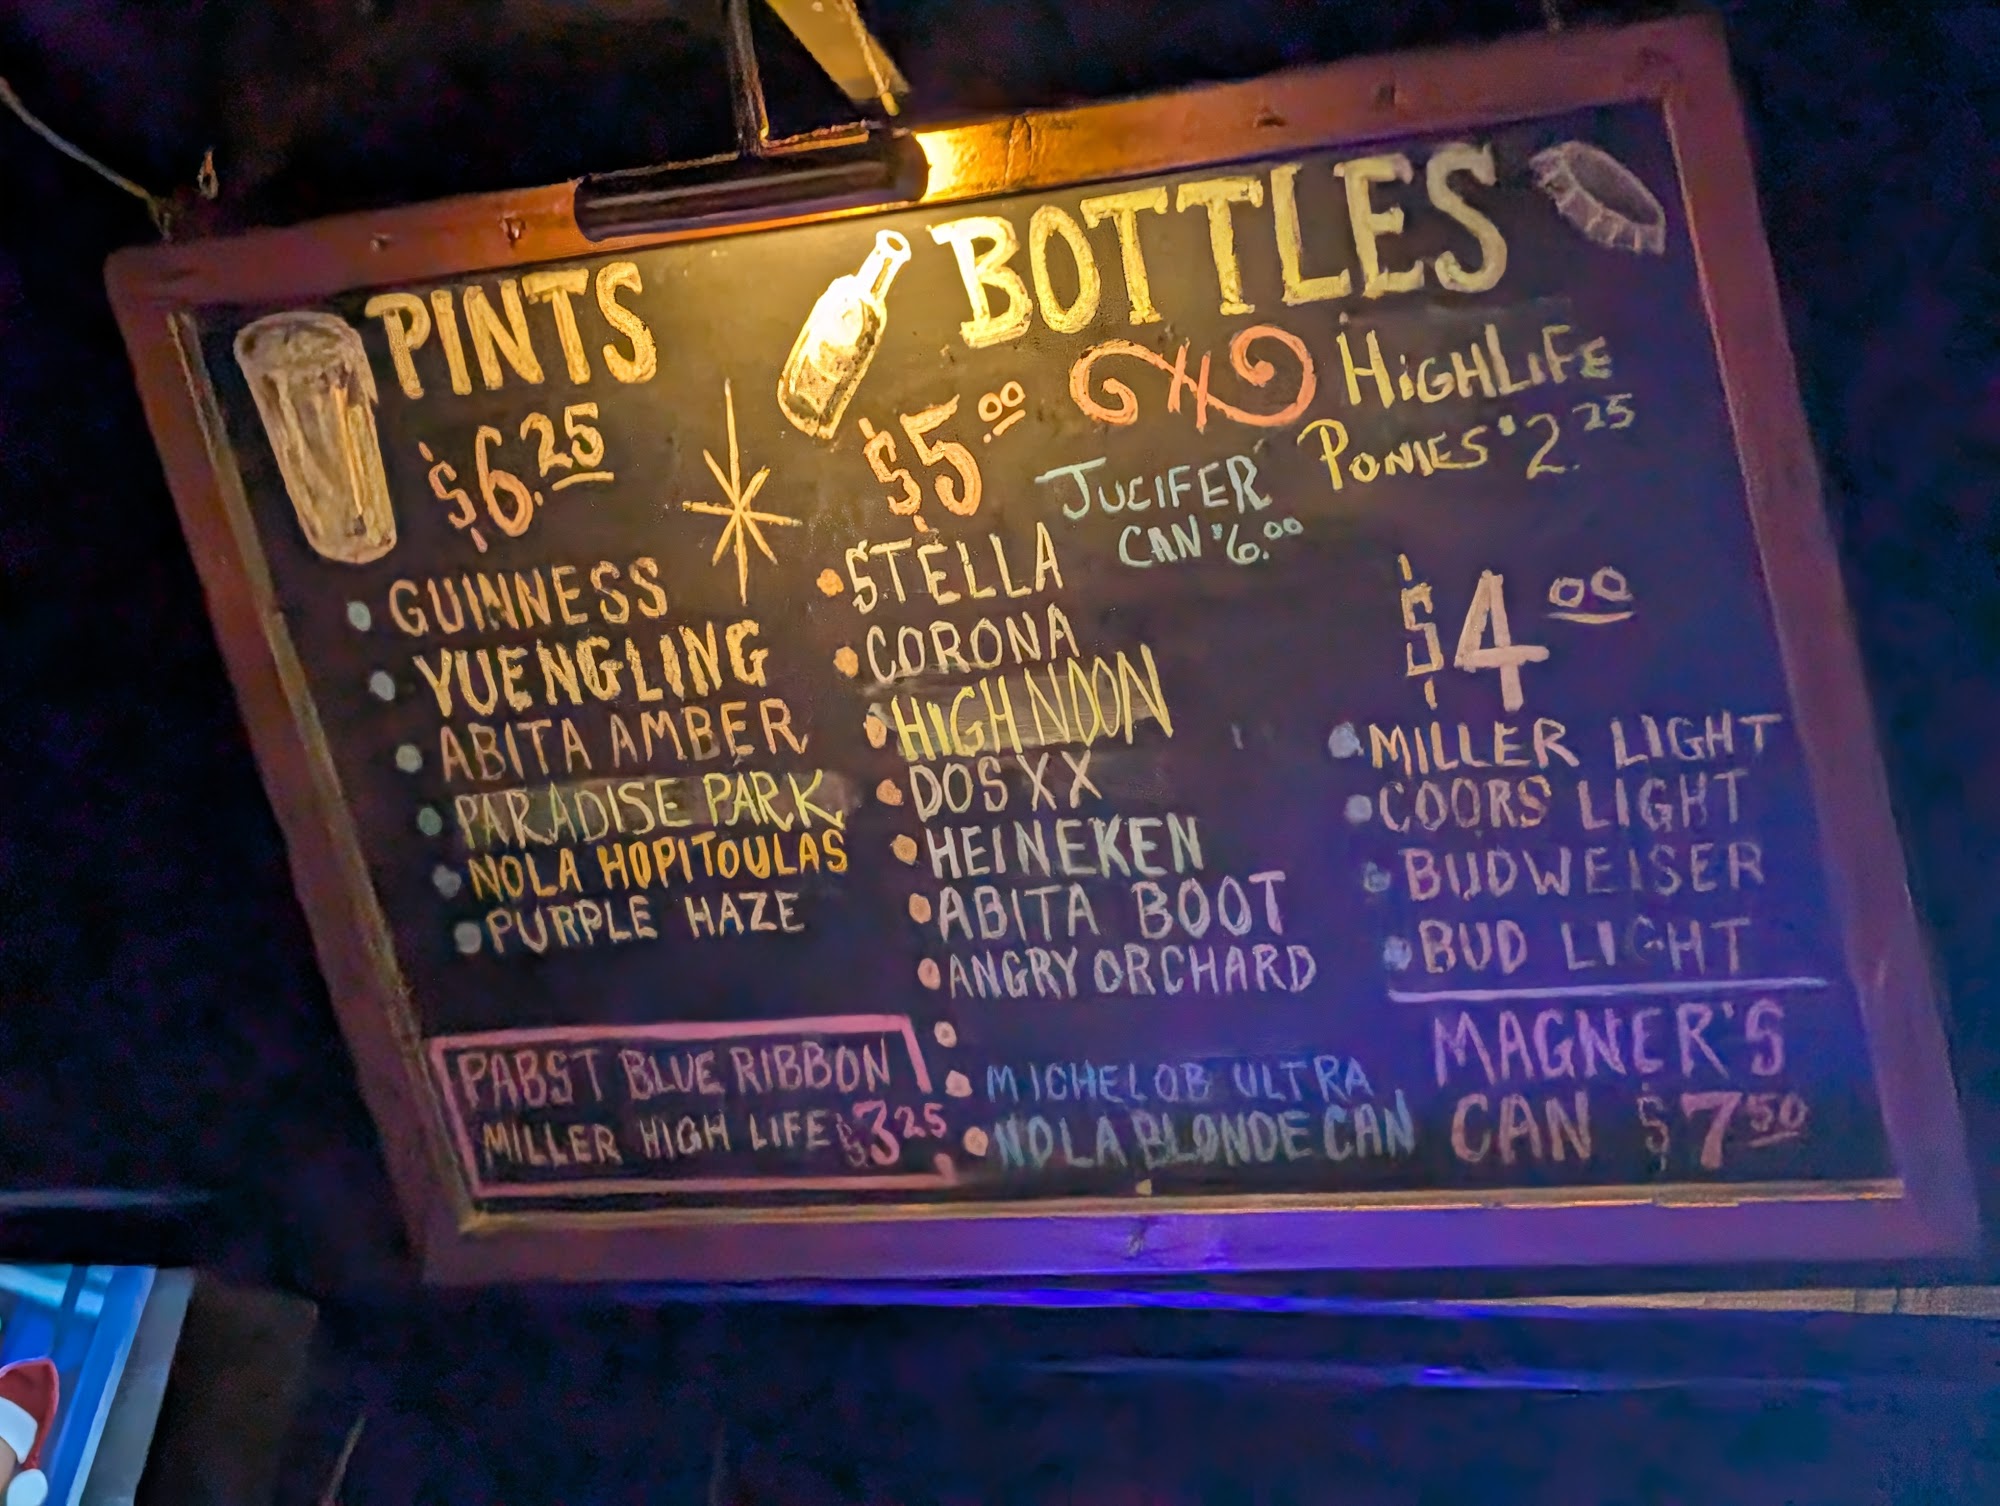 PINTS
$6.25
GUINNESS
YUENGLING
ABITA AMBER
PARADISE PARK
NOLA HOPITOULAS
PURPLE HAZE
PABST BLUE RIBBON
MILLER HIGH LIFE $3.25
BOTTLES
$5.00
HIGHLIFE
PONIES $2.25
JUCIFER
CAN $6.00
STELLA
CORONA
HIGH NOON
DOS XX
HEINEKEN
ABITA BOOT
ANGRY ORCHARD
MICHELOB ULTRA
NOLA BLONDE CAN
$4.00
MILLER LIGHT
COORS LIGHT
BUDWEISER
BUD LIGHT
MAGNER'S
CAN $7.50